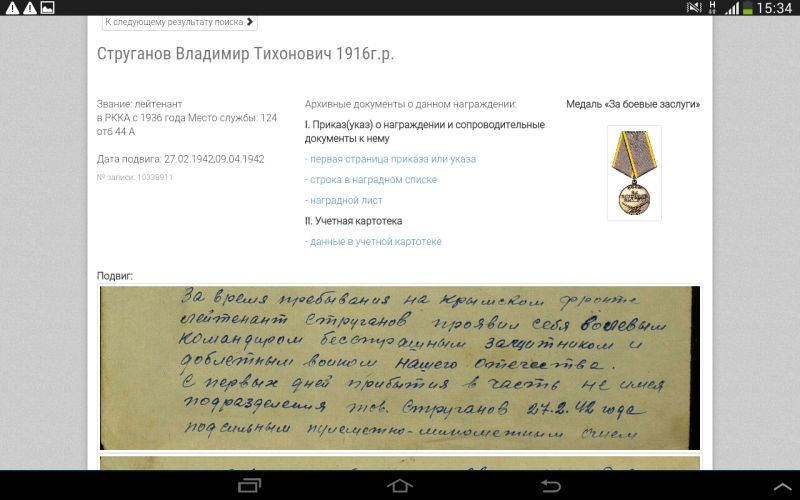 15:34
К следующему результату поиска
Струганов Владимир Тихонович 1916г.р.
Звание: лейтенант
в РККА с 1936 года Место службы: 124
отб 44 А
Дата подвига: 27.02.1942,09.04.1942
№ записи: 10338911
Архивные документы о данном награждении:
I. Приказ(указ) о награждении и сопроводительные
документы к нему
- первая страница приказа или указа
- строка в наградном списке
- наградной лист
II. Учетная картотека
- данные в учетной картотеке
Медаль «За боевые заслуги»
Подвиг:
За время пребывания на крымском фронте
лейтенант Струганов проявил себя волевым
командиром бесстрашным защитником и
доблестным воином нашего отечества.
С первых дней прибытия в часть не имея
подразделения тов. Струганов 27.2.42 года
под сильным пулеметно-минометным огнем